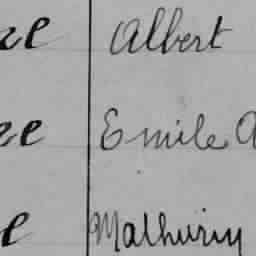 re Albert
re Emile A
e Mathurin